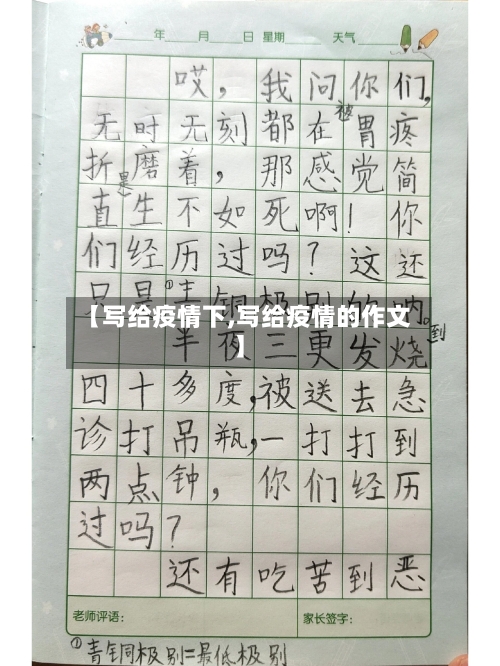 年 月 日 星期 天气
哎，我问你们，
无时无刻都在被胃疼
折磨着，那感觉简
直是生不如死啊！你
们经历过吗？这还
只是①青铜极别的呐。
【写给疫情下,写给疫情的作文】
半夜三更发烧到
四十多度，被送去急
诊打吊瓶，一打打到
两点钟，你们经历
过吗？
还有吃苦到恶
老师评语： 家长签字：
①青铜极别=最低极别